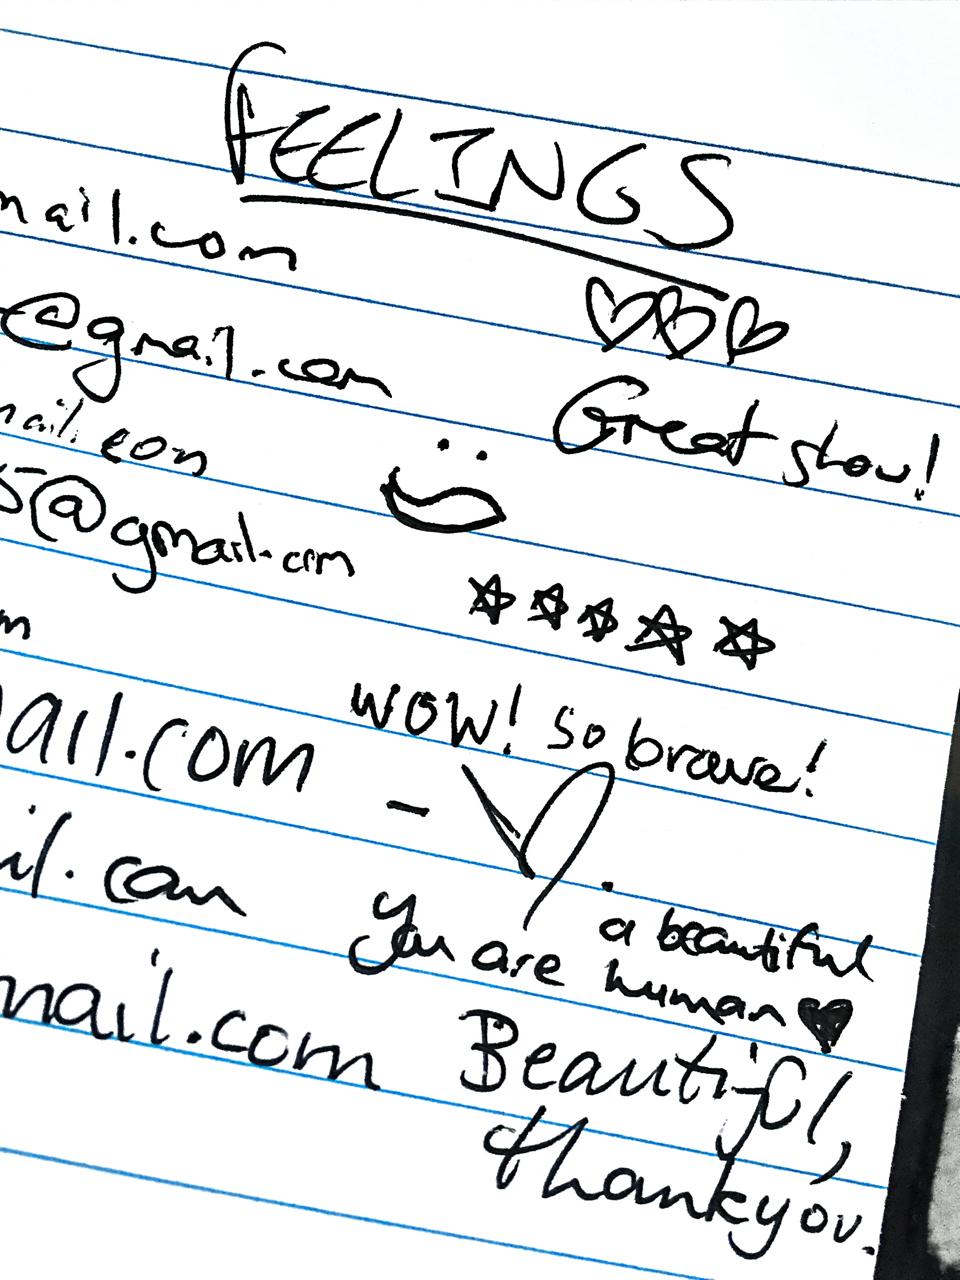 FEELINGS
mail.com
@gmail.com
Great show!
mail.com
5@gmail.com
m
WOW! So brave!
mail.com
il.com
You are a beautiful
human
mail.com
Beautiful,
thankyou.